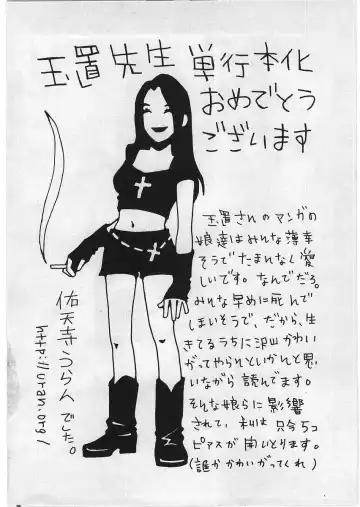 玉置先生 単行本化
おめでとう
ございます
玉置さんのマンガの
娘達はみんな薄幸
そうでたまれなく愛
しいです。なんでだろ。
みんな早めに死んで
しまいそうで、だから、生
きてるうちに沢山かわい
がってやられといかんと思
いながら読んでます。
そんな娘らに影響
されて、私は只今5コ
ピアスが開いとります。
(誰かかわいがってくれ)
佑天寺うらんでした。
http://oran.org/